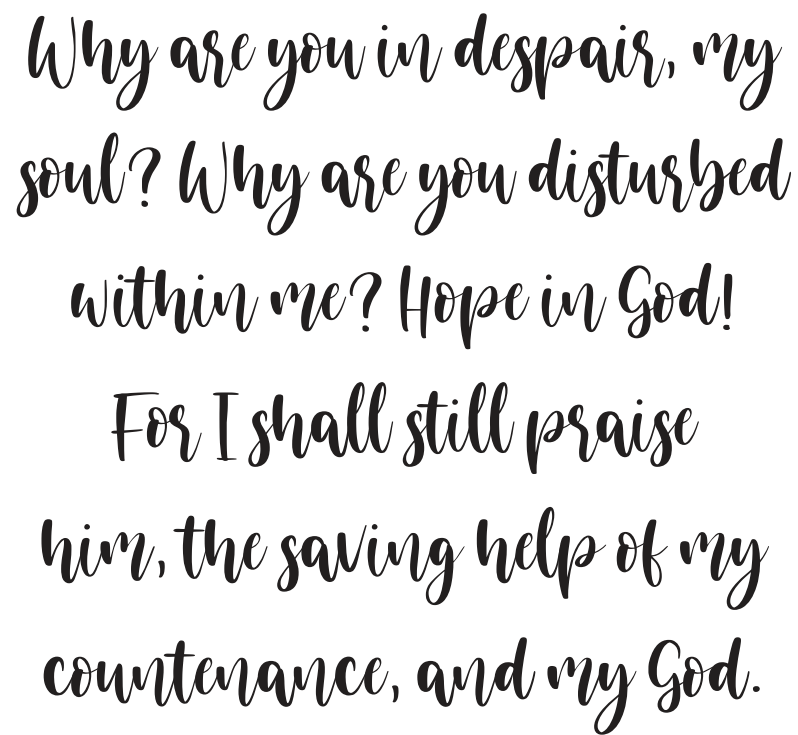 Why are you in despair, my
soul? Why are you disturbed
within me? Hope in God!
For I shall still praise
him, the saving help of my
countenance, and my God.